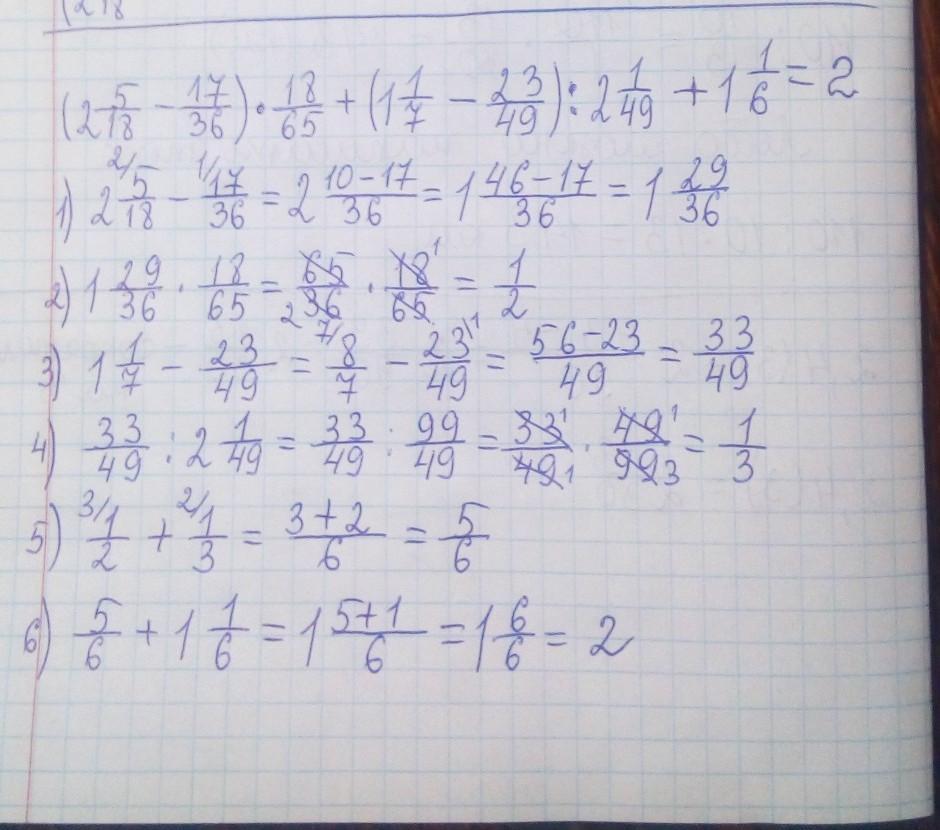 (2 5/18 − 17/36) · 18/65 + (1 1/7 − 23/49) : 2 1/49 + 1 1/6 = 2
1) 2 ²⁄5/18 − ¹⁄17/36 = 2 (10−17)/36 = 1 (46−17)/36 = 1 29/36
2) 1 29/36 · 18/65 = 65/36 2 · 18 1/65 = 1/2
3) 1 1/7 − 23/49 = ⁷⁄8/7 − 23\1/49 = (56−23)/49 = 33/49
4) 33/49 : 2 1/49 = 33/49 : 99/49 = 33 1/49 1 · 49 1/99 3 = 1/3
5) ³⁄1/2 + ²⁄1/3 = (3+2)/6 = 5/6
6) 5/6 + 1 1/6 = 1 (5+1)/6 = 1 6/6 = 2